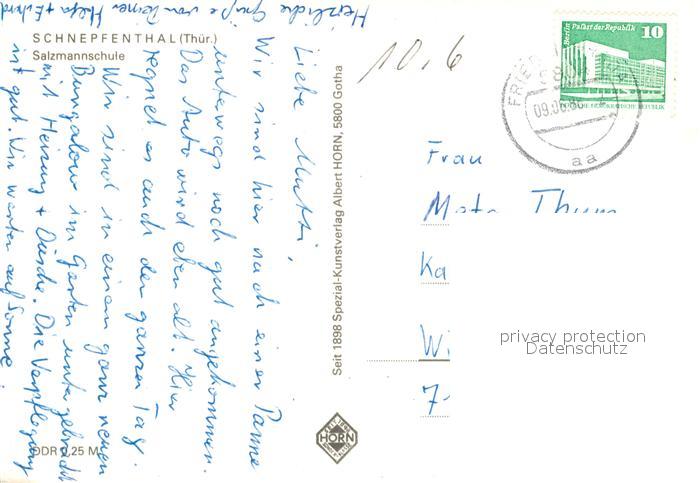 SCHNEPFENTHAL (Thür.)
Salzmannschule
Liebe Mutti,
Wir sind hier nach einer Panne
unterwegs noch gut angekommen.
Das Auto wird eben alt. Hier
regnet es auch den ganzen Tag.
Wir sind in einem ganz neuen
Bungalow im Garten untergebracht
mit Heizung + Dusche. Die Verpflegung
ist gut. Wir warten auf Sonne.
Herzliche Grüße von Deiner Helga + Erhard
DDR 0,25 M
Seit 1898 Spezial-Kunstverlag Albert HORN, 5800 Gotha
HORN
10.6
Berlin Palast der Republik
10
FRIED
580
09.06.86
aa
Frau
Thum
Ka
Wi
7
privacy protection
Datenschutz